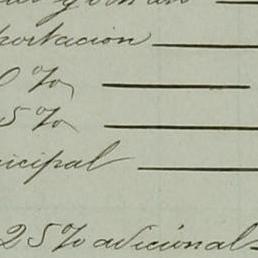 portacion
0 %
5 %
nicipal
25% adicional